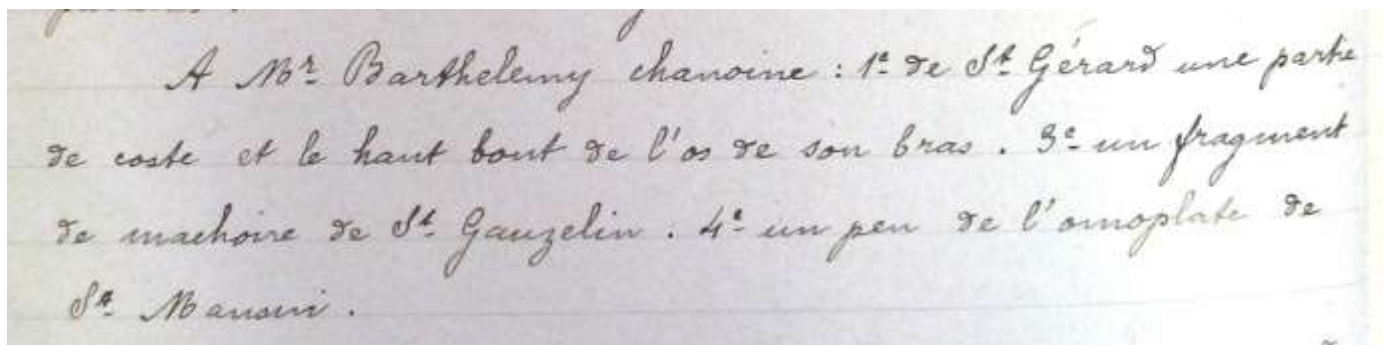 A Mr Barthelemy chanoine : 1º de St Gérard une partie
de coste et le haut bout de l'os de son bras . 3º un fragment
de machoire de St Gauzelin . 4º un peu de l'omoplate de
St Mansui .